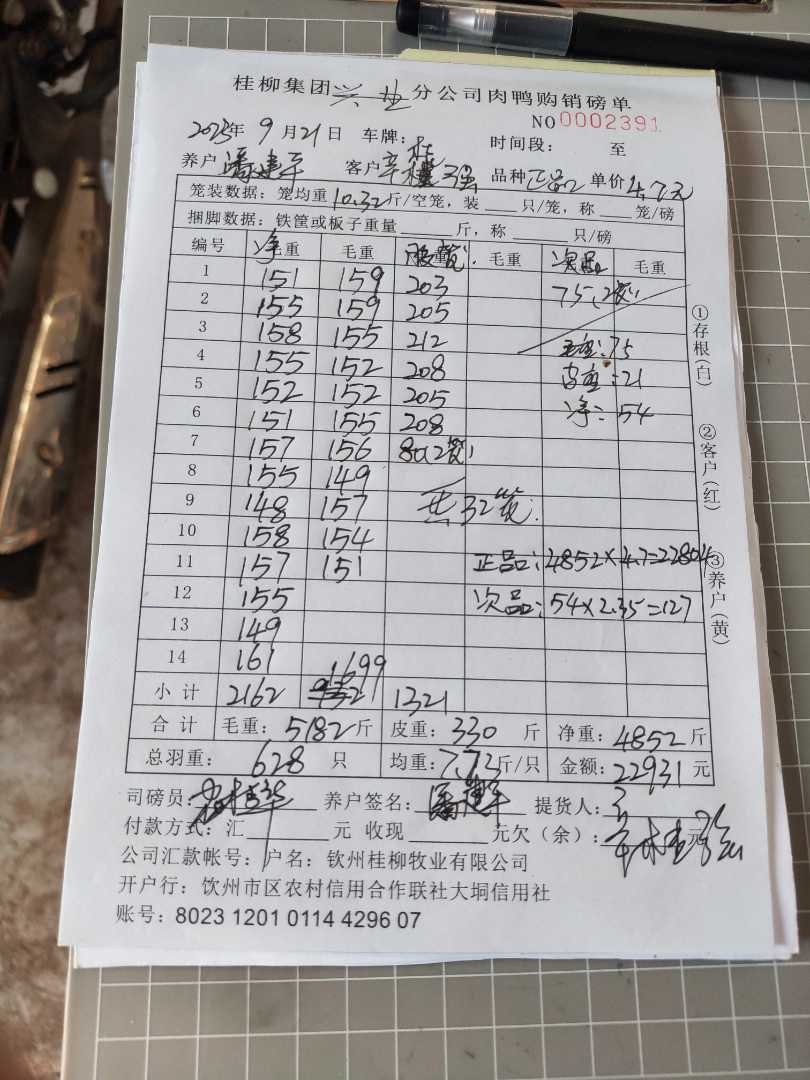 桂柳集团兴业分公司肉鸭购销磅单
NO 0002391
2023年 9月21日 车牌: 时间段: 至
养户 潘建平 客户 辛桂强 品种 正品 单价 4.7元
笼装数据: 笼均重 10.32 斤/空笼, 装 只/笼, 称 笼/磅
捆脚数据: 铁筐或板子重量 斤, 称 只/磅
编号 净重 毛重 毛重 次品 毛重
1 151 159 203 75(2笼)
2 155 159 205
3 158 155 212 毛重: 75
4 155 152 208 皮重: 21
5 152 152 205 净: 54
6 151 155 208
7 157 156 80(2笼)
8 155 149
9 148 157 共32笼
10 158 154
11 157 151 正品: 4852×4.7=22804
12 155 次品: 54×2.35=127
13 149
14 161
小计 2162 1699 1321
合计 毛重: 5182斤 皮重: 330 斤 净重: 4852斤
总羽重: 628 只 均重: 7.73斤/只 金额: 22931元
司磅员: 养户签名: 潘建平 提货人:
付款方式: 汇 元 收现 元欠(余): 元
公司汇款帐号: 户名: 钦州桂柳牧业有限公司
开户行: 饮州市区农村信用合作联社大垌信用社
账号: 8023 1201 0114 4296 07
①存根(白)
②客户(红)
③养户(黄)